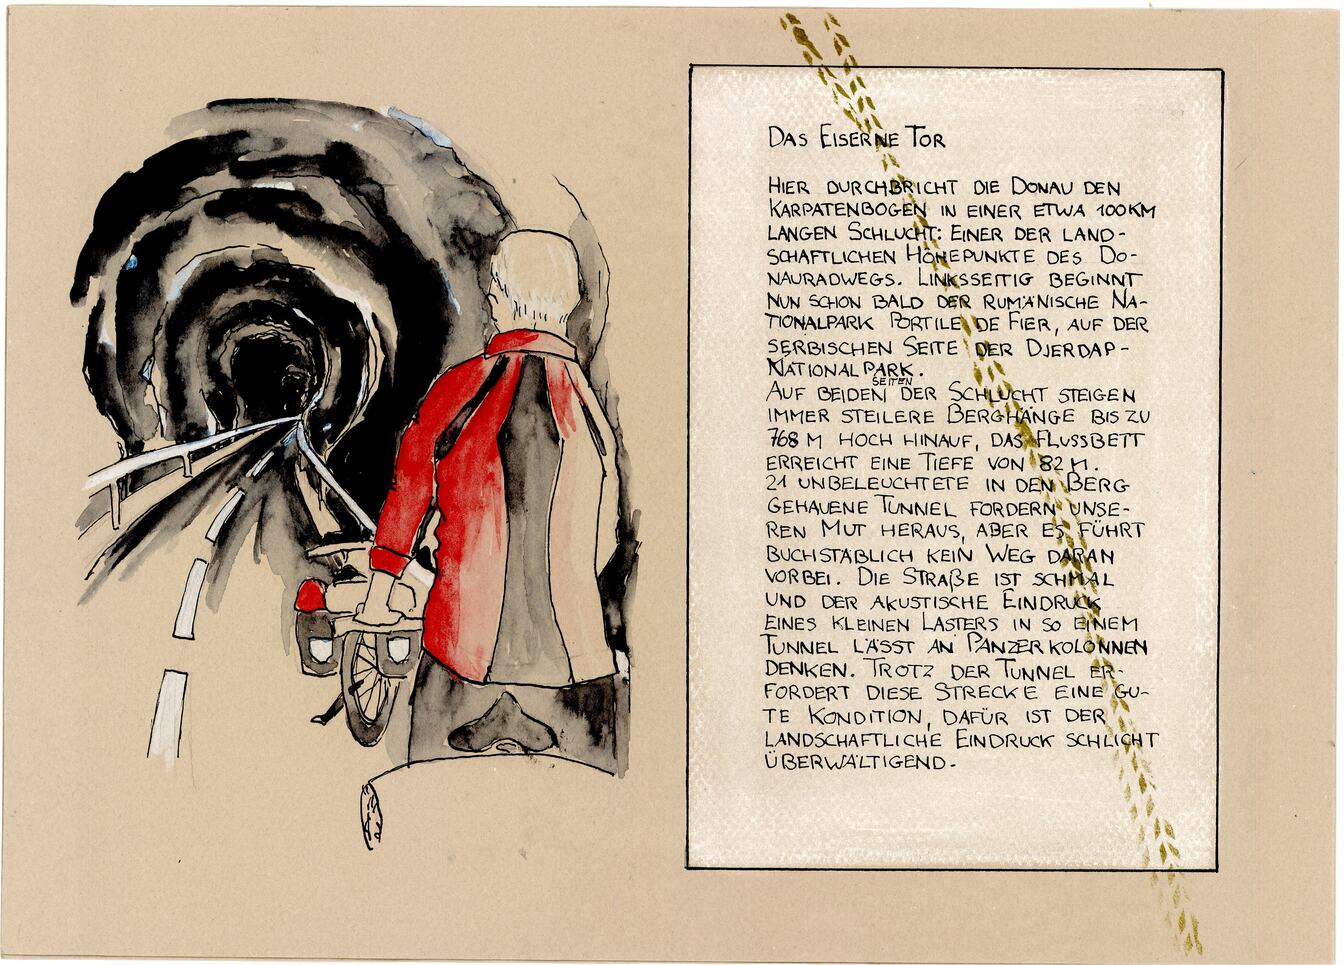 DAS EISERNE TOR
HIER DURCHBRICHT DIE DONAU DEN
KARPATENBOGEN IN EINER ETWA 100KM
LANGEN SCHLUCHT: EINER DER LAND-
SCHAFTLICHEN HÖHEPUNKTE DES DO-
NAURADWEGS. LINKSSEITIG BEGINNT
NUN SCHON BALD DER RUMÄNISCHE NA-
TIONALPARK PORTILE DE FIER, AUF DER
SERBISCHEN SEITE DER DJERDAP-
NATIONALPARK.
AUF BEIDEN SEITEN DER SCHLUCHT STEIGEN
IMMER STEILERE BERGHÄNGE BIS ZU
768 M HOCH HINAUF, DAS FLUSSBETT
ERREICHT EINE TIEFE VON 82 M.
21 UNBELEUCHTETE IN DEN BERG
GEHAUENE TUNNEL FORDERN UNSE-
REN MUT HERAUS, ABER ES FÜHRT
BUCHSTÄBLICH KEIN WEG DARAN
VORBEI. DIE STRAßE IST SCHMAL
UND DER AKUSTISCHE EINDRUCK
EINES KLEINEN LASTERS IN SO EINEM
TUNNEL LÄSST AN PANZERKOLONNEN
DENKEN. TROTZ DER TUNNEL ER-
FORDERT DIESE STRECKE EINE GU-
TE KONDITION, DAFÜR IST DER
LANDSCHAFTLICHE EINDRUCK SCHLICHT
ÜBERWÄLTIGEND.